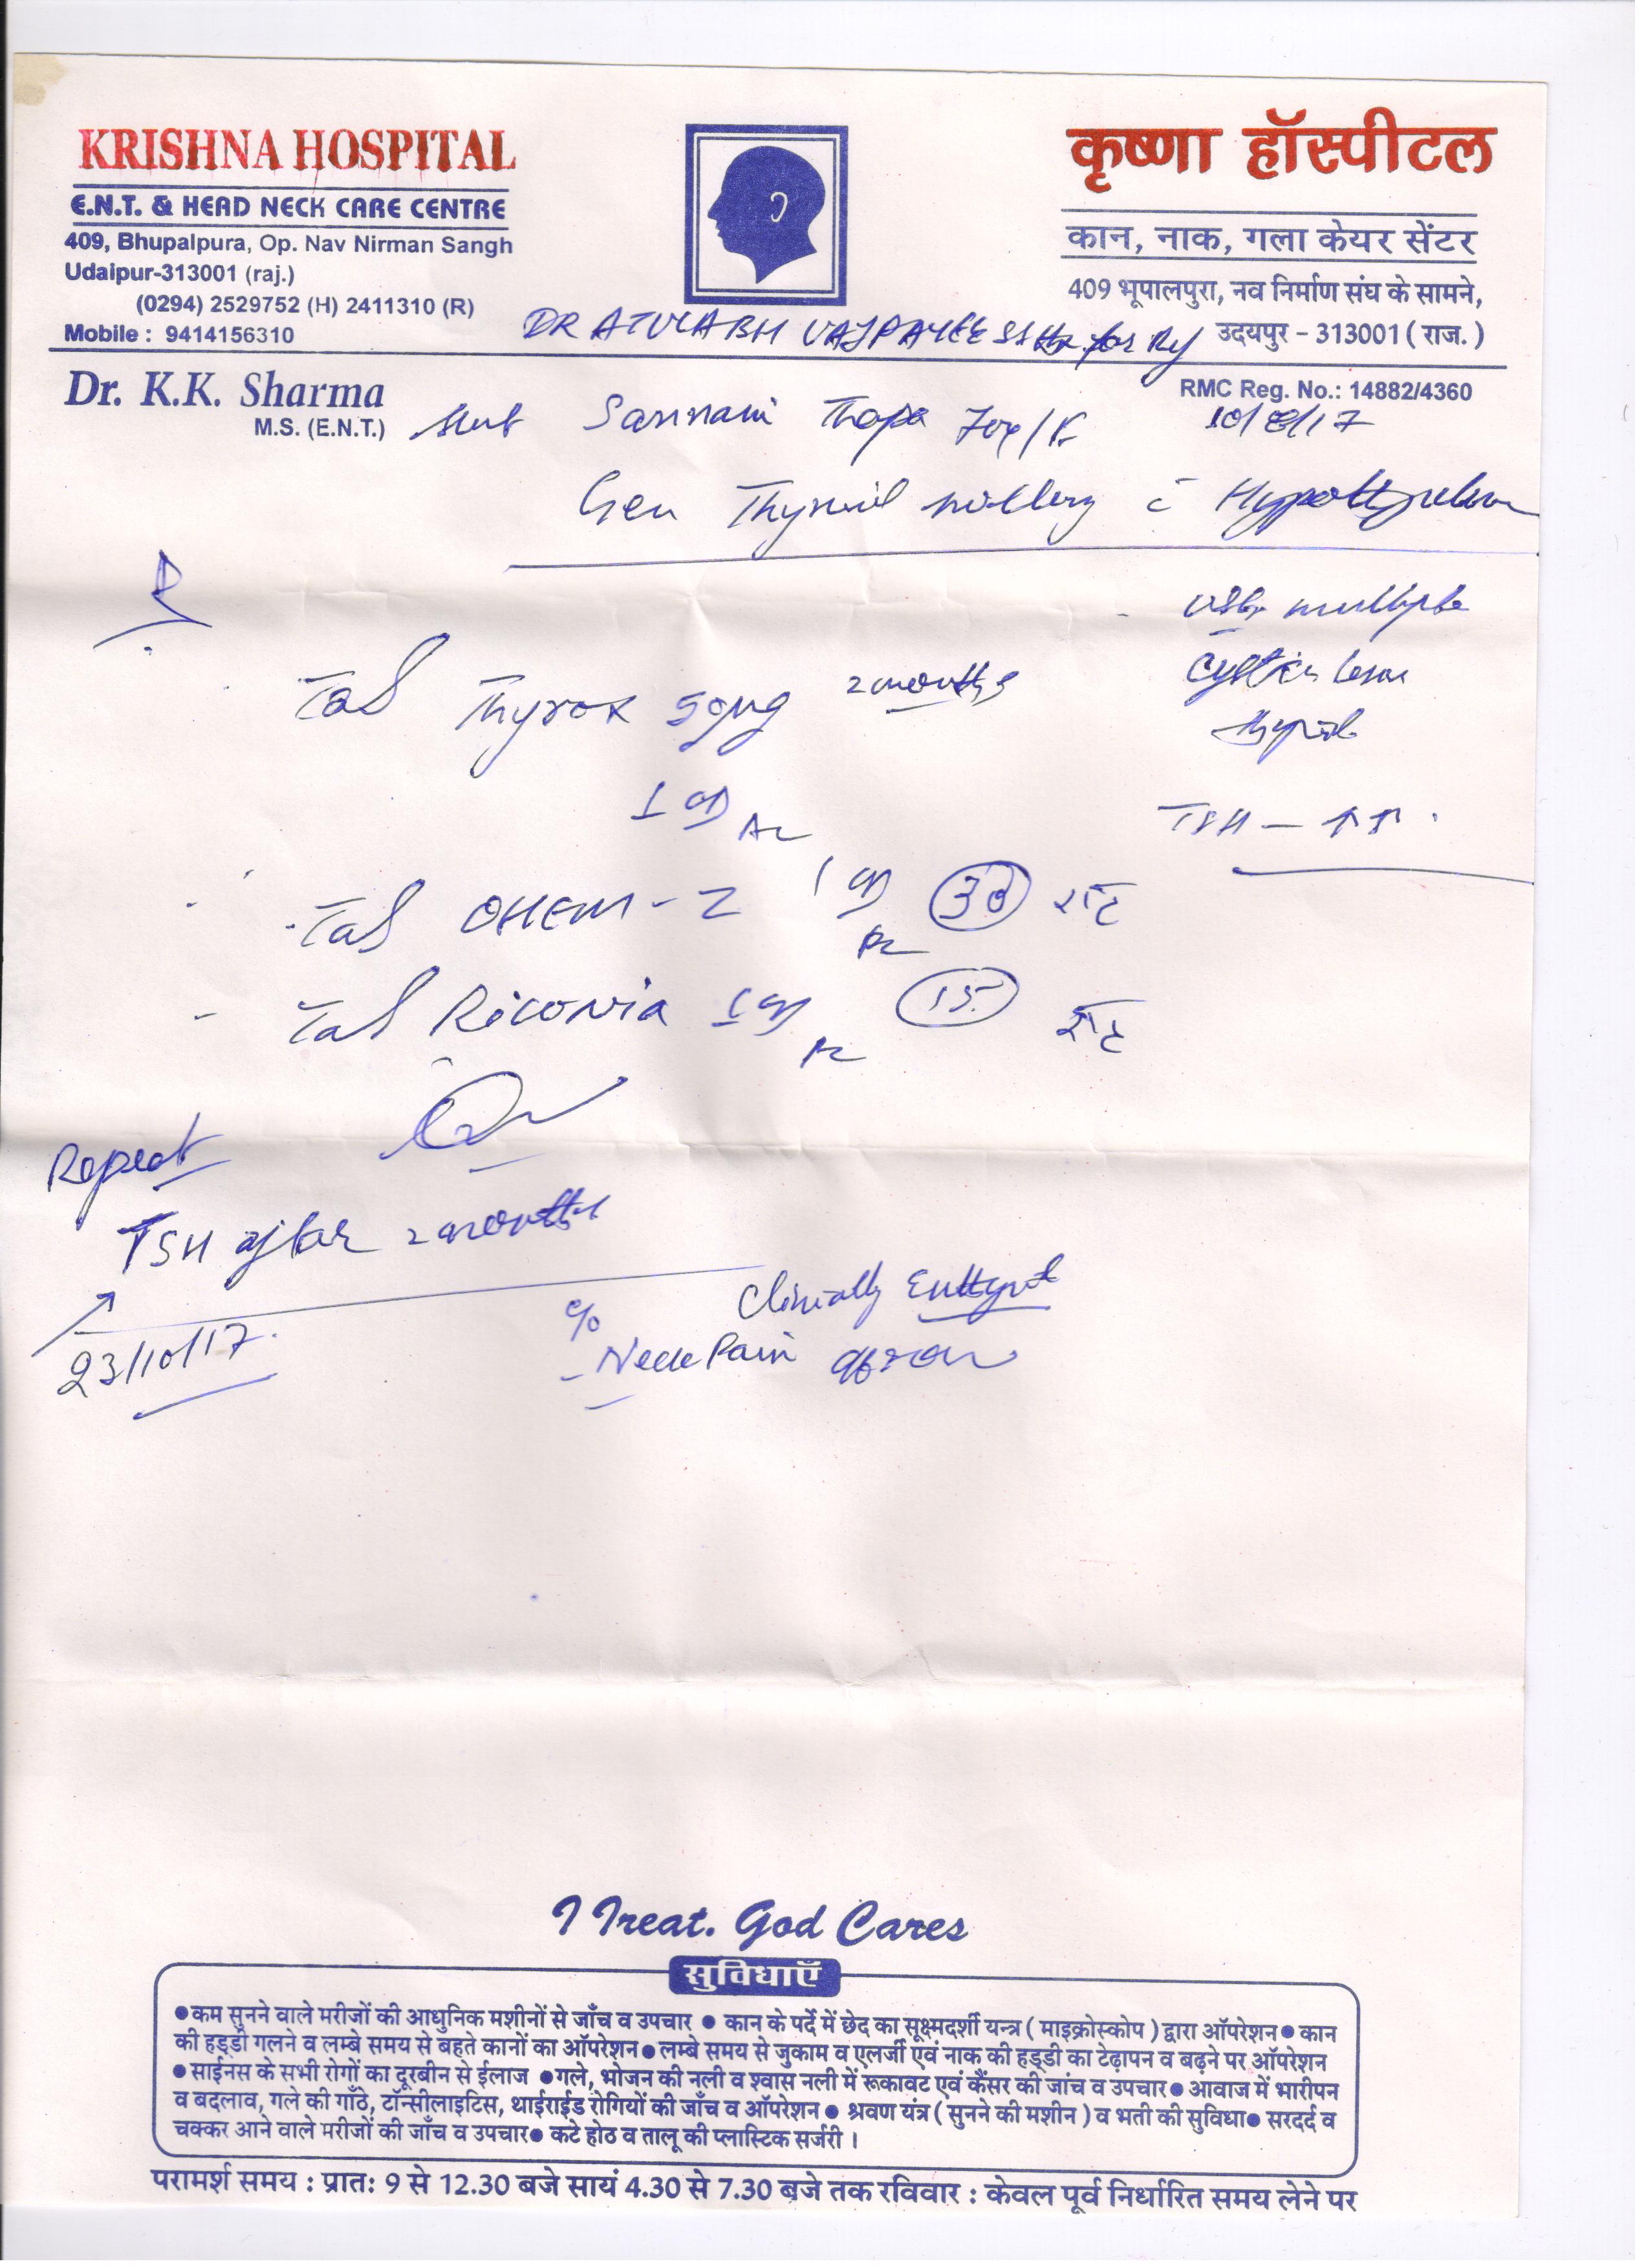 KRISHNA HOSPITAL
E.N.T. & HEAD NECK CARE CENTRE
409, Bhupalpura, Op. Nav Nirman Sangh
Udaipur-313001 (raj.)
(0294) 2529752 (H) 2411310 (R)
Mobile : 9414156310
कृष्णा हॉस्पीटल
कान, नाक, गला केयर सेंटर
409 भूपालपुरा, नव निर्माण संघ के सामने,
उदयपुर - 313001 ( राज. )
DR ATULABH VAJPAYEE for
Dr. K.K. Sharma
M.S. (E.N.T.)
RMC Reg. No.: 14882/4360
Thapa 10/8/17
Thyroid
multiple
Tab Thyrox 50µg 2 months
1 OD AC
TSH - ↑↑.
Tab CHEM-Z 1 OD 30
Tab Riconia 1 OD 15
Repeat
TSH after 2 months
23/10/17
Clinically Euthyroid
C/o
- Neck Pain
I Treat. God Cares
सुविधाएँ
● कम सुनने वाले मरीजों की आधुनिक मशीनों से जाँच व उपचार ● कान के पर्दे में छेद का सूक्ष्मदर्शी यन्त्र ( माइक्रोस्कोप ) द्वारा ऑपरेशन ● कान
की हड्डी गलने व लम्बे समय से बहते कानों का ऑपरेशन ● लम्बे समय से जुकाम व एलर्जी एवं नाक की हड्डी का टेढ़ापन व बढ़ने पर ऑपरेशन
● साईनस के सभी रोगों का दूरबीन से ईलाज ● गले, भोजन की नली व श्वास नली में रूकावट एवं कैंसर की जांच व उपचार ● आवाज में भारीपन
व बदलाव, गले की गाँठे, टॉन्सीलाइटिस, थाईराईड रोगियों की जाँच व ऑपरेशन ● श्रवण यंत्र ( सुनने की मशीन ) व भर्ती की सुविधा ● सरदर्द व
चक्कर आने वाले मरीजों की जाँच व उपचार ● कटे होठ व तालू की प्लास्टिक सर्जरी ।
परामर्श समय : प्रातः 9 से 12.30 बजे सायं 4.30 से 7.30 बजे तक रविवार : केवल पूर्व निर्धारित समय लेने पर